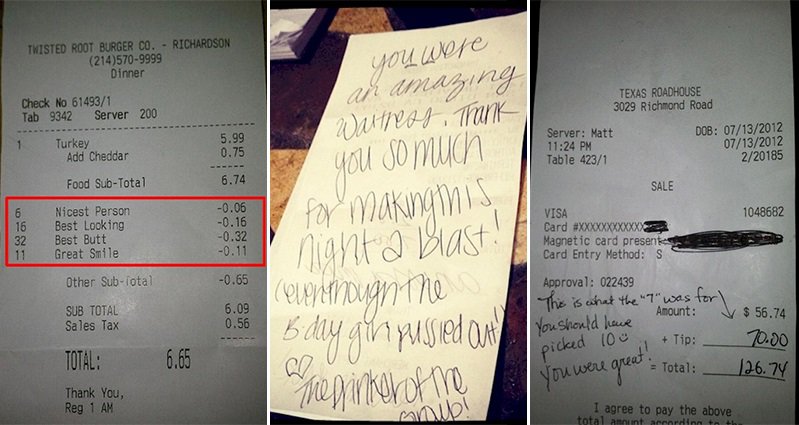 TWISTED ROOT BURGER CO. - RICHARDSON
(214)570-9999
Dinner
Check No 61493/1
Tab 9342 Server 200
1 Turkey 5.99
Add Cheddar 0.75
Food Sub-Total 6.74
6 Nicest Person -0.06
16 Best Looking -0.16
32 Best Butt -0.32
11 Great Smile -0.11
Other Sub-Total -0.65
SUB TOTAL 6.09
Sales Tax 0.56
TOTAL: 6.65
Thank You,
Reg 1 AM
you were
an amazing
waitress. Thank
you so much
for making this
night a blast!
(even though the
B day girl pussied out!)
The drinker of the
group!
TEXAS ROADHOUSE
3029 Richmond Road
Server: Matt DOB: 07/13/2012
11:24 PM 07/13/2012
Table 423/1 2/20185
SALE
VISA 1048682
Card #XXXXXXXXXXXX
Magnetic card present
Card Entry Method: S
Approval: 022439
This is what the "7" was for
Amount: $ 56.74
You should have
+ Tip: 70.00
picked 10
You were great!
= Total: 126.74
I agree to pay the above
total amount according to the